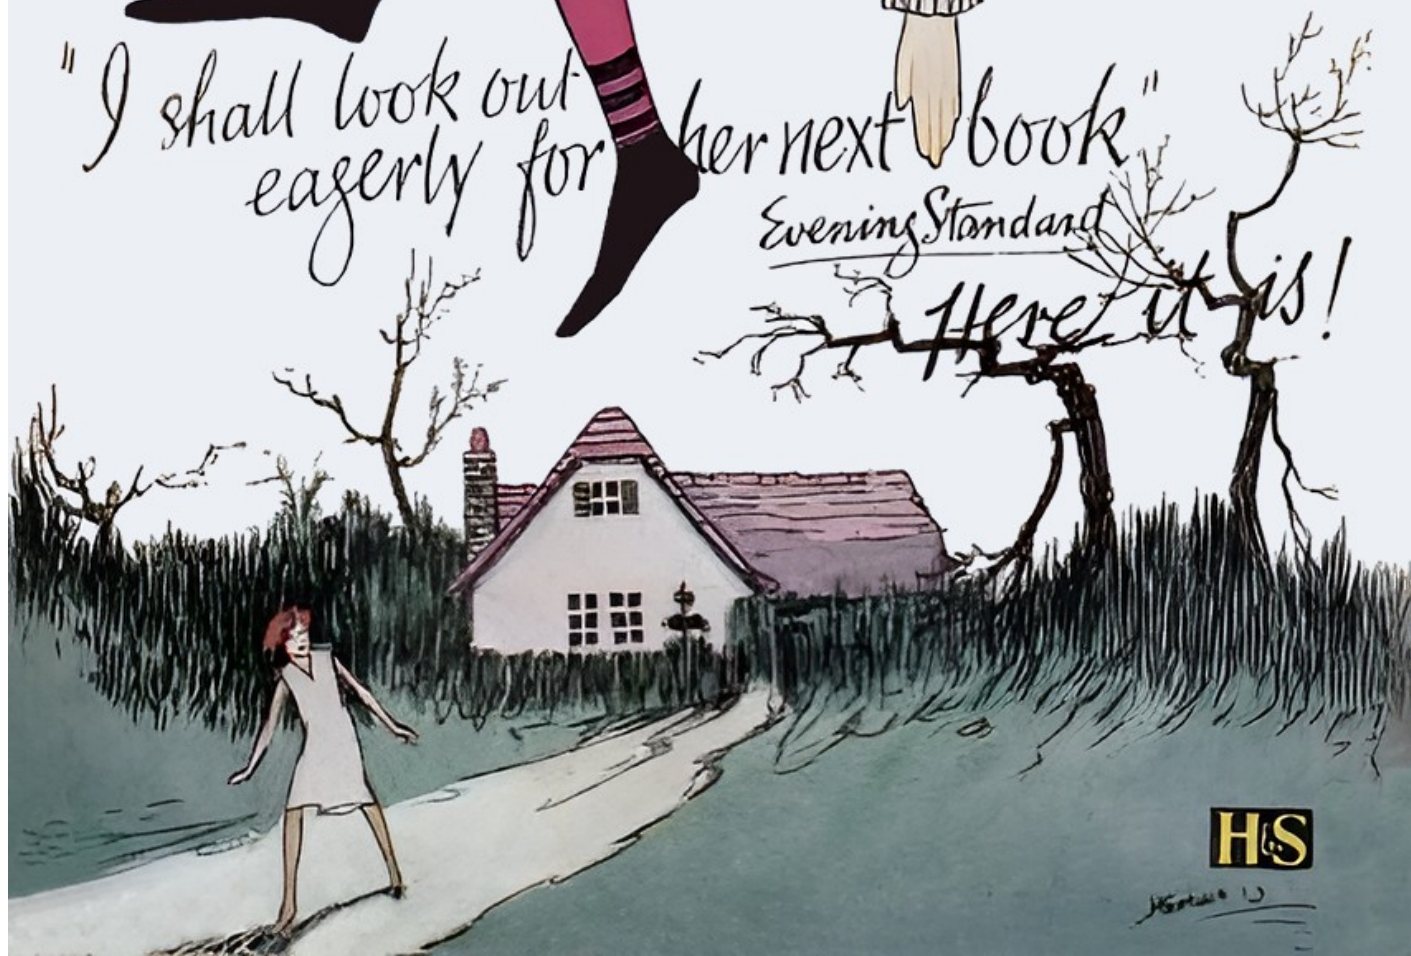 "I shall look out
eagerly for her next book"
Evening Standard
Here it is!
H&S